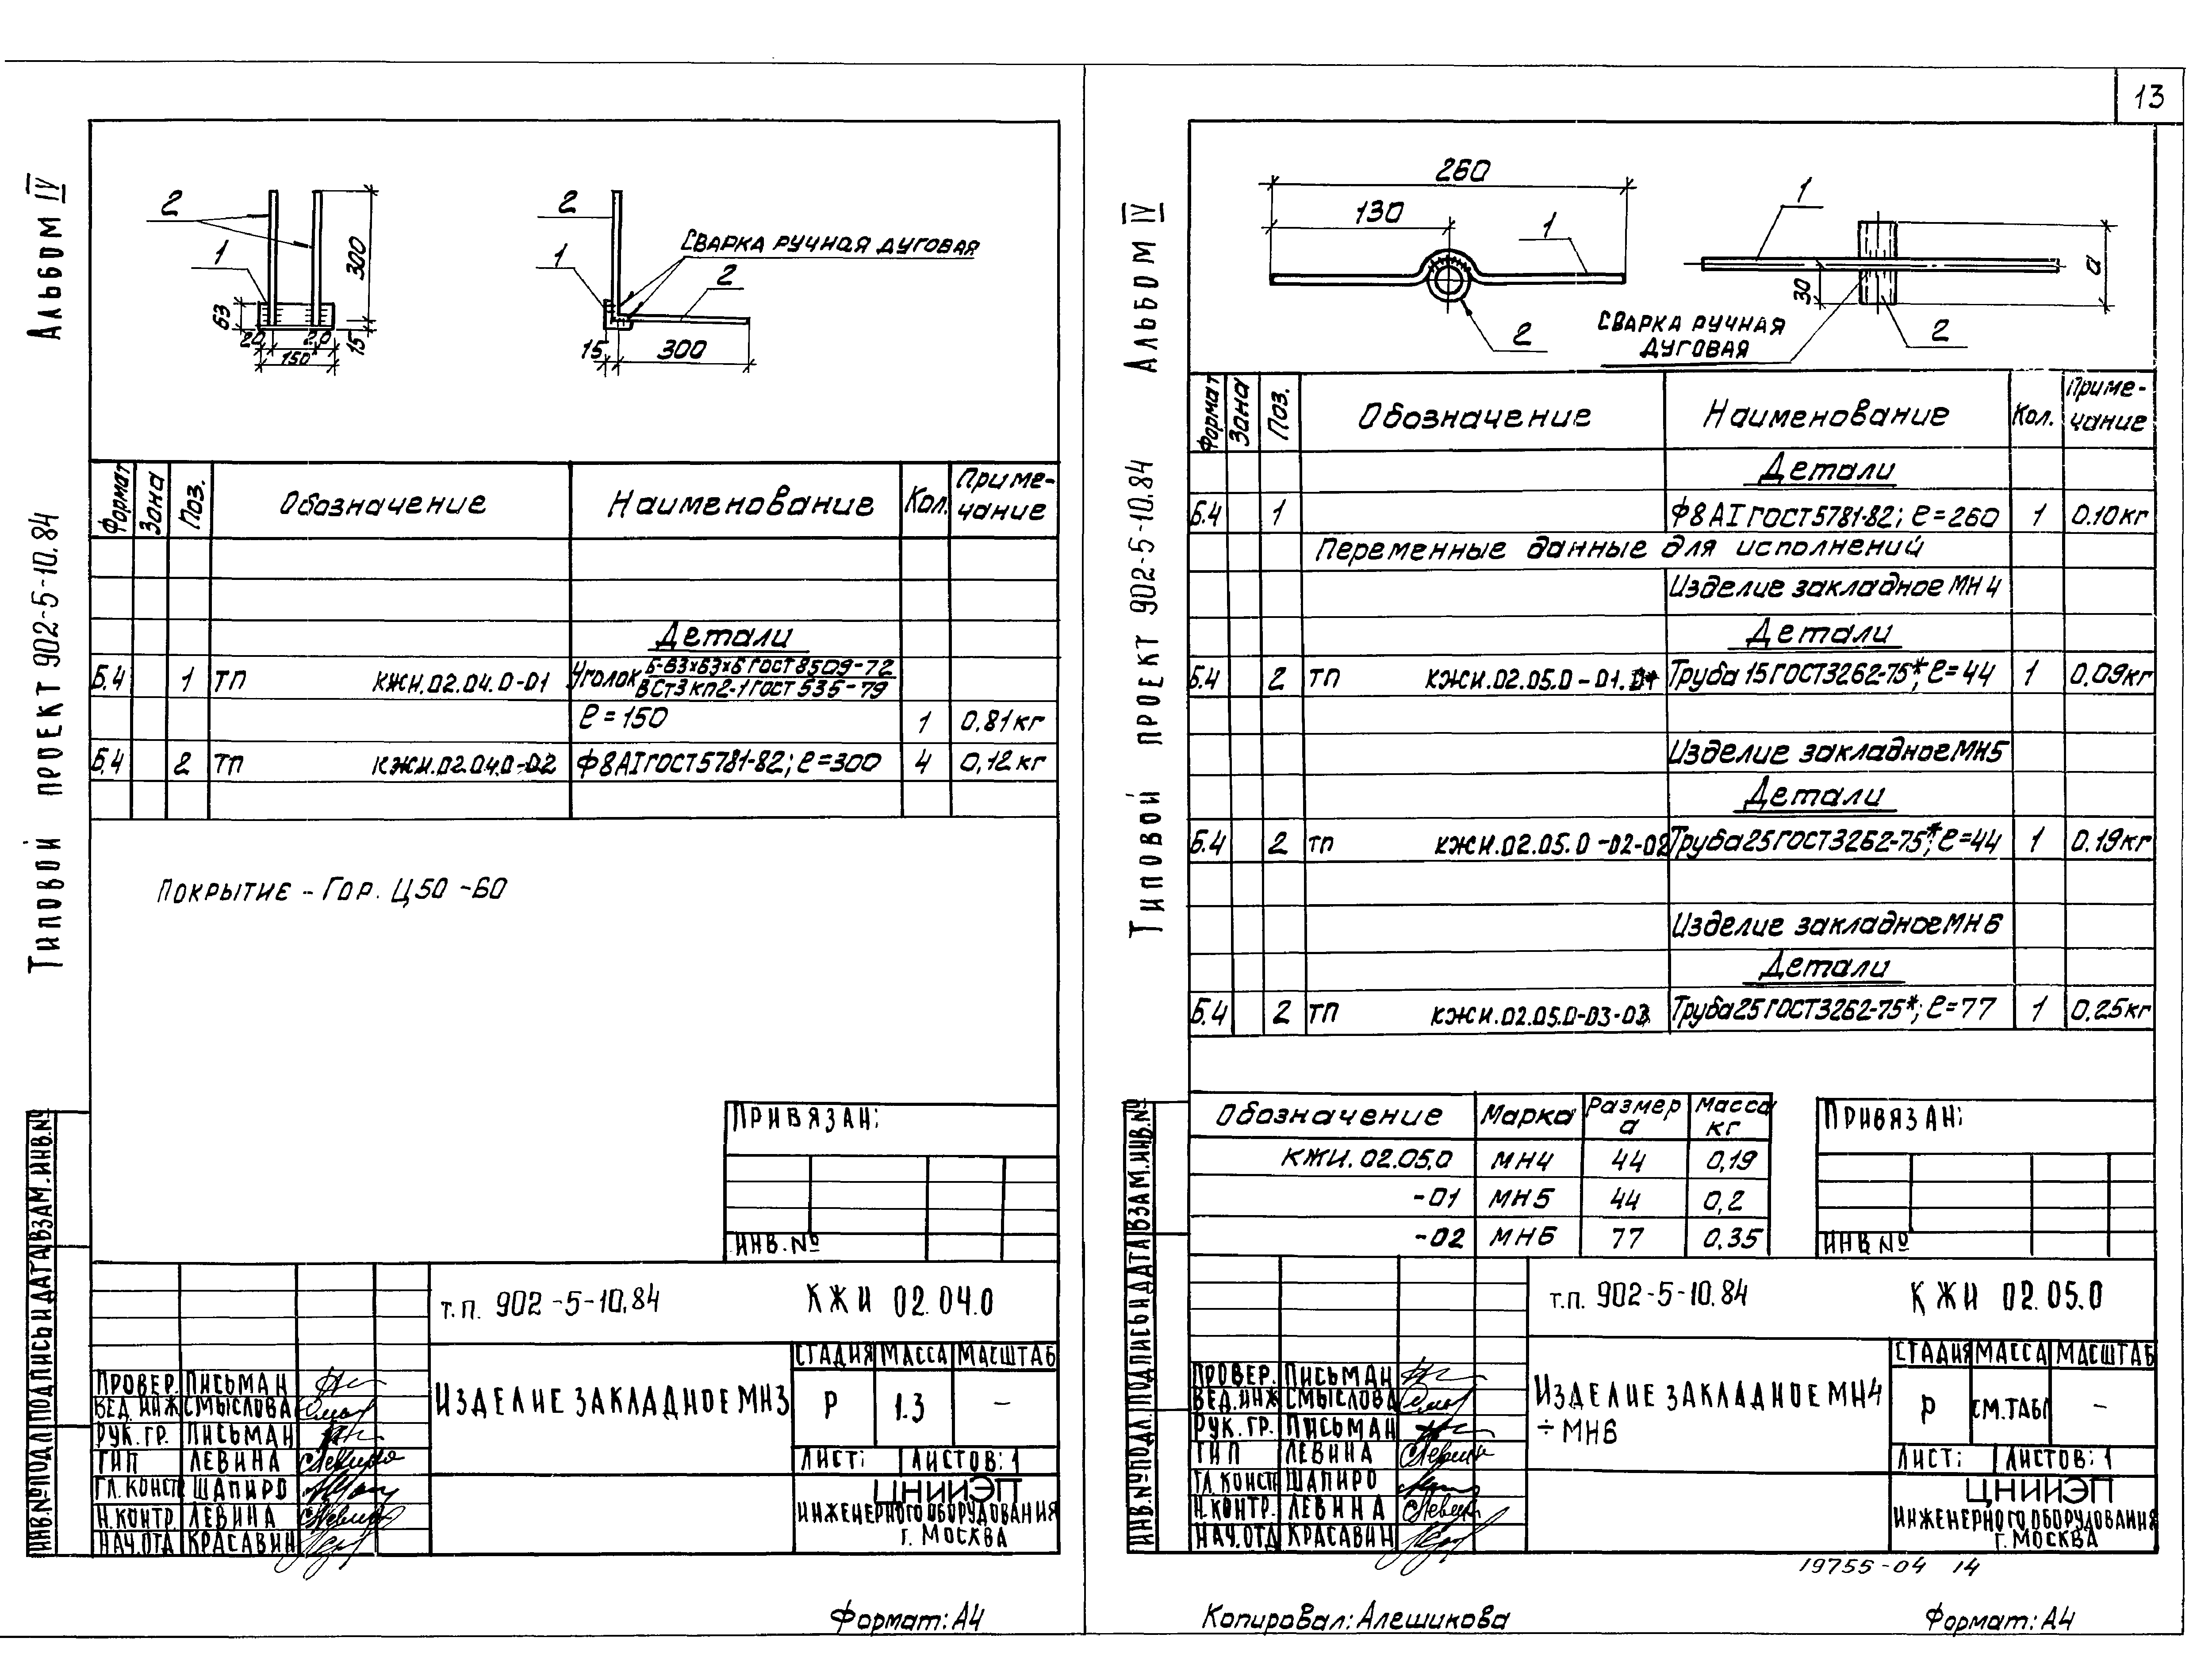 13
Альбом IV
Типовой проект 902-5-10.84
2
1
300
63
20
20
150
15
2
1
Сварка ручная дуговая
2
15
300
Формат
Зона
Поз.
Обозначение
Наименование
Кол.
Приме-
чание
Детали
Б.4 1 ТП КЖИ.02.04.0-01 Уголок Б-63х63х6 ГОСТ 8509-72
ВСт3кп2-1 ГОСТ 535-79
ℓ=150 1 0,81кг
Б.4 2 ТП КЖИ.02.04.0-02 Ф8АI ГОСТ 5781-82; ℓ=300 4 0,12кг
Покрытие - Гор. Ц50-60
Привязан:
Инв.№
Инв.№ подл. Подпись и дата Взам.инв.№
т.п. 902-5-10.84 КЖИ 02.04.0
Провер. Письман
Вед. инж Смыслова
Рук. гр. Письман
ГИП Левина
Гл. конст Шапиро
Н.контр. Левина
Нач.отд Красавин
Изделие закладное МН3
Стадия Масса Масштаб
Р 1.3 -
Лист: Листов: 1
ЦНИИЭП
инженерного оборудования
г. Москва
Формат: А4
Альбом IV
Типовой проект 902-5-10.84
260
130
1
2
1
30
а
2
Сварка ручная
дуговая
Формат
Зона
Поз.
Обозначение
Наименование
Кол.
Приме-
чание
Детали
Б.4 1 Ф8АI ГОСТ 5781-82; ℓ=260 1 0.10кг
Переменные данные для исполнений
Изделие закладное МН4
Детали
Б.4 2 ТП КЖИ.02.05.0-01. Труба 15 ГОСТ 3262-75*; ℓ=44 1 0.09кг
Изделие закладное МН5
Детали
Б.4 2 ТП КЖИ.02.05.0-02-02 Труба 25 ГОСТ 3262-75*; ℓ=44 1 0.19кг
Изделие закладное МН6
Детали
Б.4 2 ТП КЖИ.02.05.0-03-03 Труба 25 ГОСТ 3262-75*; ℓ=77 1 0.25кг
Обозначение Марка Размер а Масса кг
КЖИ.02.05.0 МН4 44 0,19
-01 МН5 44 0,2
-02 МН6 77 0,35
Привязан:
Инв №
Инв.№ подл. Подпись и дата Взам.инв.№
т.п. 902-5-10.84 КЖИ 02.05.0
Провер. Письман
Вед.инж Смыслова
Рук. гр. Письман
ГИП Левина
Гл. конст Шапиро
Н.контр. Левина
Нач.отд Красавин
Изделие закладное МН4
÷ МН6
Стадия Масса Масштаб
Р См.табл -
Лист: Листов: 1
ЦНИИЭП
инженерного оборудования
г. Москва
19755-04 14
Копировал: Алешикова
Формат: А4